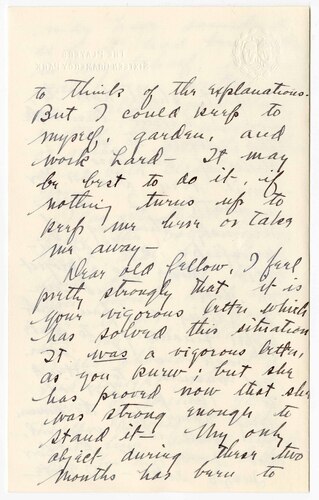 to think of the explanations.
But I could keep to
myself, garden, and
work hard — It may
be best to do it, if
nothing turns up to
keep me here or take
me away —
Dear old fellow, I feel
pretty strongly that it is
your vigorous letter which
has solved this situation
It was a vigorous letter,
as you knew; but she
has proved now that she
was strong enough to
stand it — My only
object during these two
months has been to